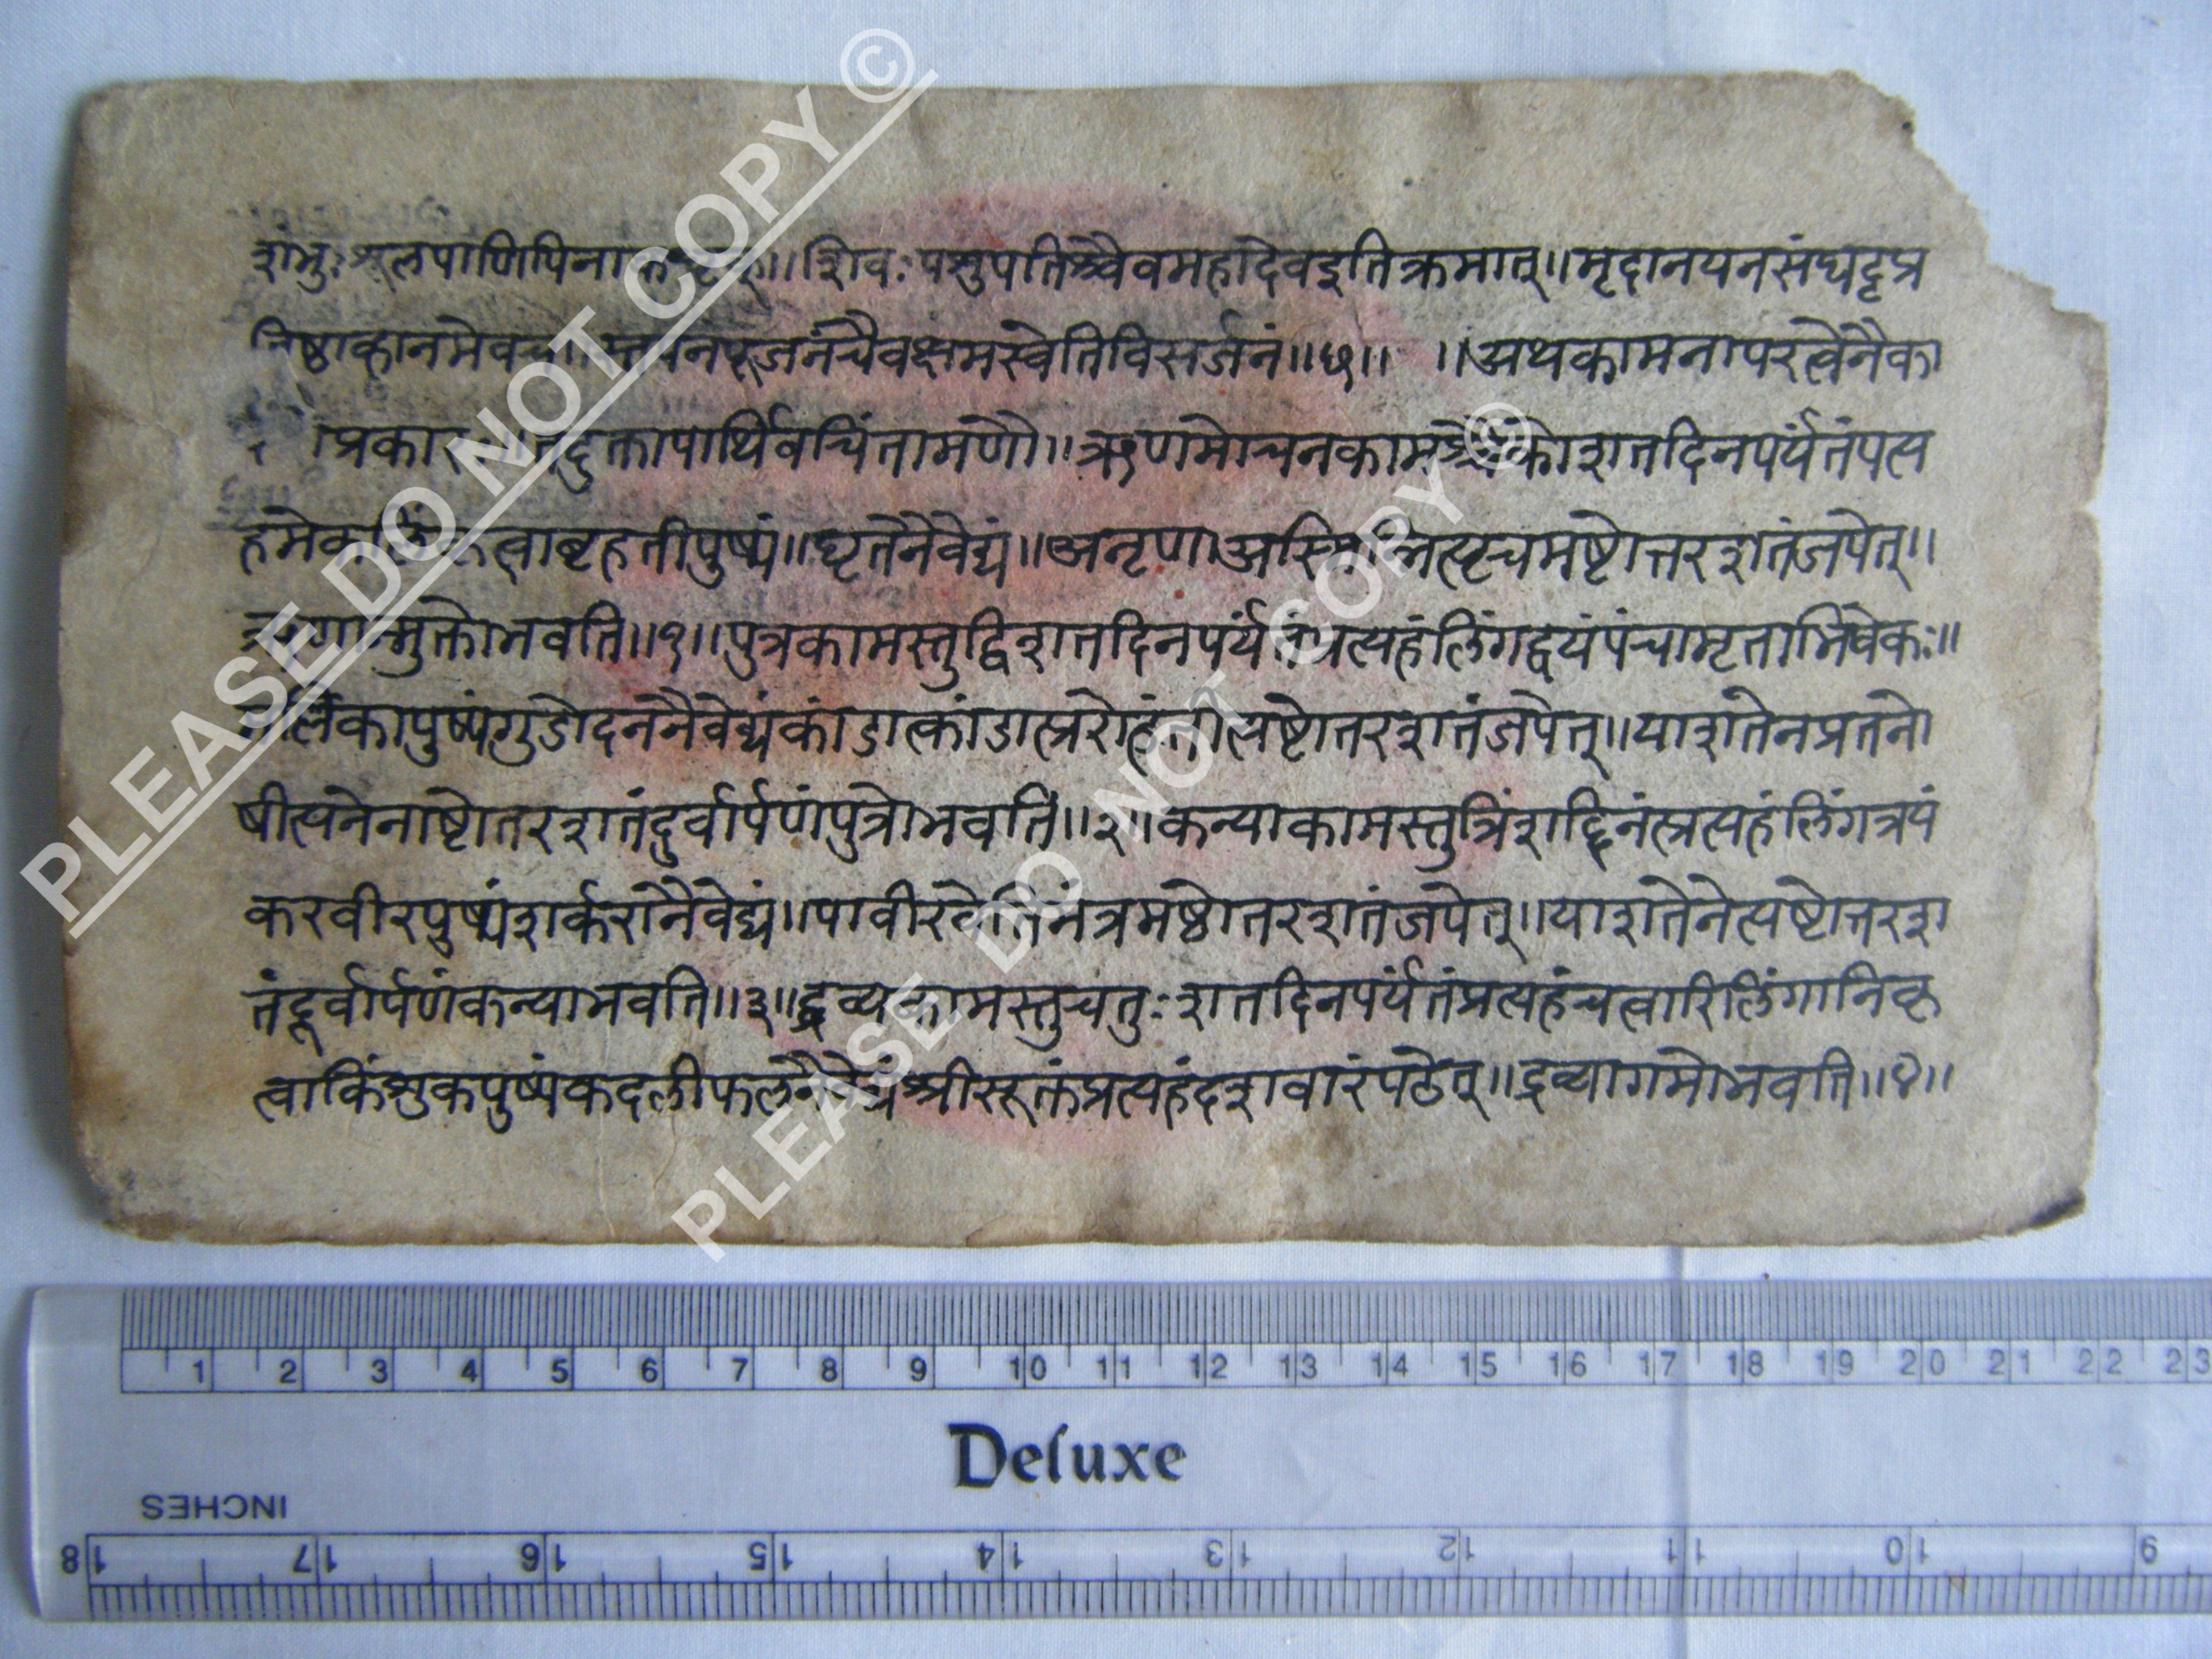 शंभुः शूलपाणिपिना ॥शिवःपशुपतिश्चैवमहादेवइतिक्रमात्॥मृदानयनसंघट्टप्र
तिष्ठाव्हानमेवच॥ पूजनंचैवक्षमस्वेतिविसर्जनं॥७॥ ॥अथकामनापरत्वेनैका
प्रकार तदुक्तंपार्थिवचिंतामणौ॥ऋणमोचनकाम शतदिनपर्यंतंपत्य
हमेक बृहतीपुष्पं॥घृतनैवेद्यं॥अनृणाअस्मि मष्टोत्तरशतंजपेत्॥
मुक्तोभवति॥१॥पुत्रकामस्तुद्विशतदिनपर्यंतंप्रत्यहंलिंगद्वयंपंचामृताभिषेकः॥
पुष्पंगुडोदननैवेद्यंकांडात्कांडात्प्ररोहंतीत्यष्टोतरशतंजपेत्॥याशतेनप्रतनो
षीत्यनेनाष्टोतरशतंदुर्वार्पणंपुत्रोभवति॥२॥कन्याकामस्तुत्रिंशद्दिनंत्प्रत्यहंलिंगत्रयं
करवीरपुष्पंशर्करानैवेद्यं॥पावीरवेतिमंत्रमष्ठोतरशतंजपेत्॥याशतेनेत्यष्टोत्तरश
तंदूर्वार्पणंकन्याभवति॥३॥द्रव्यकामस्तुचतुःशतदिनपर्यंतंप्रत्यहंचत्वारिलिंगानिकृ
त्वाकिंशुकपुष्पंकदलीफलनैवेद्यंश्रीसूक्तंप्रत्यहंदशवारंपठेत्॥द्रव्यागमोभवति॥४॥
PLEASE DO NOT COPY ©
PLEASE DO NOT COPY ©
1 2 3 4 5 6 7 8 9 10 11 12 13 14 15 16 17 18 19 20 21 22 23
Deluxe
INCHES
18 17 16 15 14 13 12 11 10 9